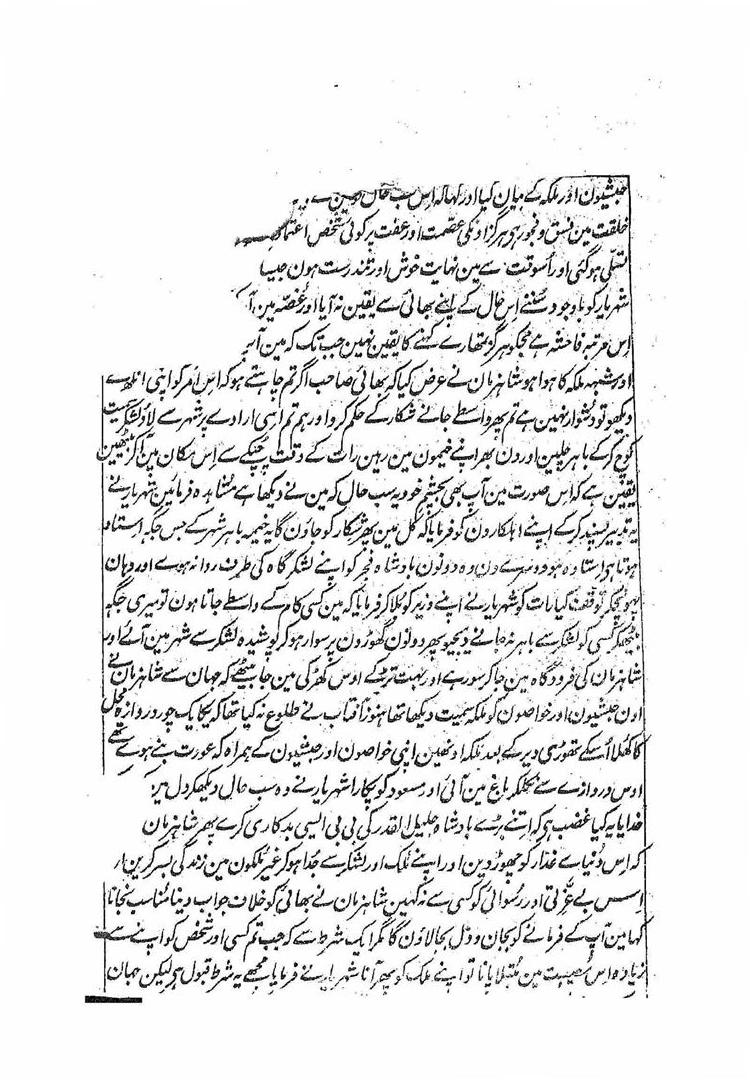 حبشیون اور ملکہ کے بیان کیا اور کہا کہ اس سب حال
خلقت مین فسق و فجور ہو ہرگز اونکی عصمت اور عفت پر کوئی شخص اعتماد
تسلی ہو گئی اور اُسوقت سے مین نہایت خوش اور تندرست ہون جیسا
شہریار کو باوجود سننے اِس حال کے اپنے بھائی سے یقین نہ آیا اور غصّہ مین آ
اِس مرتبہ فاحشہ ہے مجکو ہرگز تمھارے کہنے کا یقین نہین جب تک کہ مین آپ
اور شبہہ ملکہ کا ہوا ہو شاہزمان نے عرض کیا کہ بھائی صاحب اگر تم چاہتے ہو کہ اس امر کو اپنی انکھہ سے
دیکھو تو دشوار نہین ہے تم پھر واسطے جانے شکار کے حکم کرو اور ہم تم اسی ارادے پر شہر سے لاؤ لشکر سمیت
کوچ کر کے باہر چلین اور دن بھر اپنے خیمون مین رہین رات کے وقت چپکے سے اِس مکان مین آکر بیٹھین
یقین ہے کہ اِس صورت مین آپ بھی بچشم خود یہ سب حال کہ مین نے دیکھا ہے مشاہدہ فرمائین شہریار نے
یہ تدبیر پسند کر کے اپنے اہلکارون کو فرمایا کہ کل مین پھر شکار کو جاؤن گا یہ خیمہ باہر شہر کے جس جگہ استادہ
ہوتا ہی استادہ ہو دوسرے دن وہ دونون بادشاہ فجر کو اپنے لشکر گاہ کی طرف روانہ ہوے اور وہان
پہونچکر توقف کیا رات کو شہریار نے اپنے وزیر کو بلا کر فرمایا کہ مین کسی کام کے واسطے جاتا ہون تو میری جگہہ
بیٹھکر کسی کو لشکر سے باہر نہ جانے دیجیو پھر دونون گھوڑون پر سوار ہو کر پوشیدہ لشکر سے شہر مین آئے اور
شاہزمان کی فرودگاہ مین جا کر سو رہے اور بہت تڑکے اوس کھڑکی مین جا بیٹھے کہ جہان سے شاہزمان نے
اون حبشیون اور خواصون کو ملکہ سمیت دیکھا تھا ہنوز آفتاب نے طلوع نہ کیا تھا کہ یکایک چور دروازہ محل
کا کھلا اُسکے تھوڑی دیر کے بعد ملکہ اونھین اپنی خواصون اور حبشیون کے ہمراہ کہ عورت بنے ہوئے تھے
اوس دروازے سے نکلکر باغ مین آئی اور مسعود کو پکارا شہریار نے وہ سب حال دیکھکر دل مین
خدایا یہ کیا غضب ہی کہ اتنے بڑے بادشاہ جلیل القدر کی بی بی ایسی بدکاری کرے پھر شاہزمان
کہ اِس دُنیا سے غدار کو چھوڑ دین اور اپنے ملک اور لشکر سے جُدا ہو کر غیر ملکون مین زندگی بسر کرین
اس بے عزّتی اور رسوائی کو کسی سے نہ کہین شاہزمان نے بھائی کو خلاف جواب دینا مناسب نجانا
کہا مین آپ کے فرمانے کو بجان و دل بجالاؤن گا مگر ایک شرط سے کہ جب تم کسی اور شخص کو اپنے سے
زیادہ اِس مصیبت مین مبتلا پانا تو اپنے ملک کو پھر آنا شہریار نے فرمایا مجھے یہ شرط قبول ہی لیکن جہان